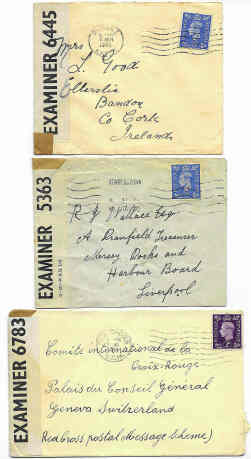 EXAMINER 6445
Mrs
L. Good
Ellerslie
Bandon
Co Cork
Ireland
EXAMINER 5363
R J Wallace Esq
A Dranfield Treasurer
Mersey Docks and
Harbour Board
Liverpool
EXAMINER 6783
Comité international de la
Croix-Rouge
Palais du Conseil Général
Geneva Switzerland
(Red Cross postal Message Scheme)